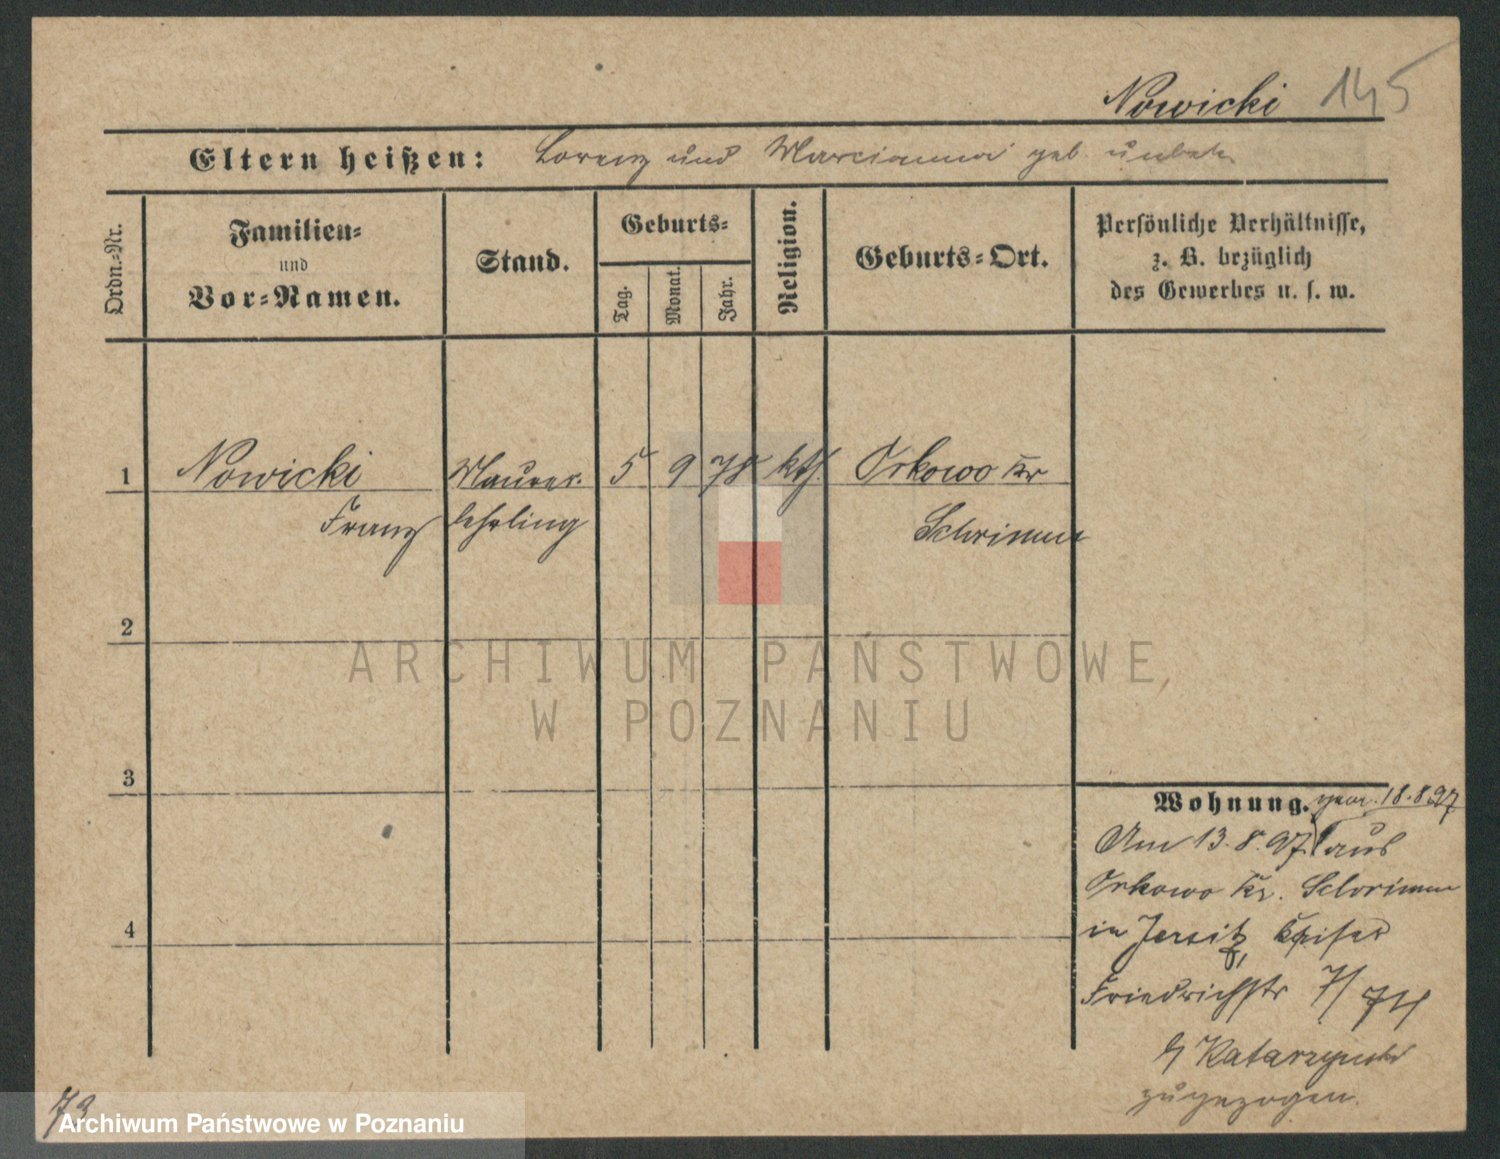 Nowicki 145
Eltern heißen: Lorenz und Marcianna geb. unbek.
Ordn.-Nr.
Familien-
und
Vor-Namen.
Stand.
Geburts-
Tag.
Monat.
Jahr.
Religion.
Geburts-Ort.
Persönliche Verhältnisse,
z. B. bezüglich
des Gewerbes u. s. w.
1 Nowicki Maurer- 5 9 78 kth. Orkowo Kr
Franz lehrling Schrimm
2
3
4
Wohnung. 18.8.97
Am 13.8.97 aus
Orkowo Kr. Schrimm
in Jersitz, Kaiser
Friedrichstr 7/
Katarzynski
zugezogen.
73
ARCHIWUM PAŃSTWOWE
W POZNANIU
Archiwum Państwowe w Poznaniu